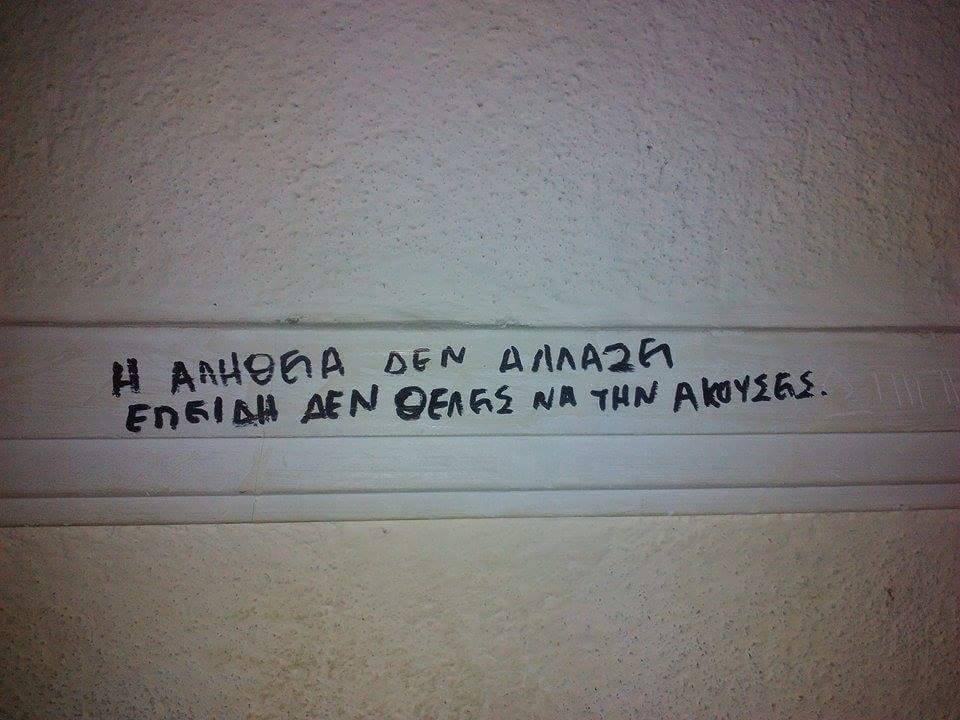 Η ΑΛΗΘΕΙΑ ΔΕΝ ΑΛΛΑΖΕΙ
ΕΠΕΙΔΗ ΔΕΝ ΘΕΛΕΙΣ ΝΑ ΤΗΝ ΑΚΟΥΣΕΙΣ.